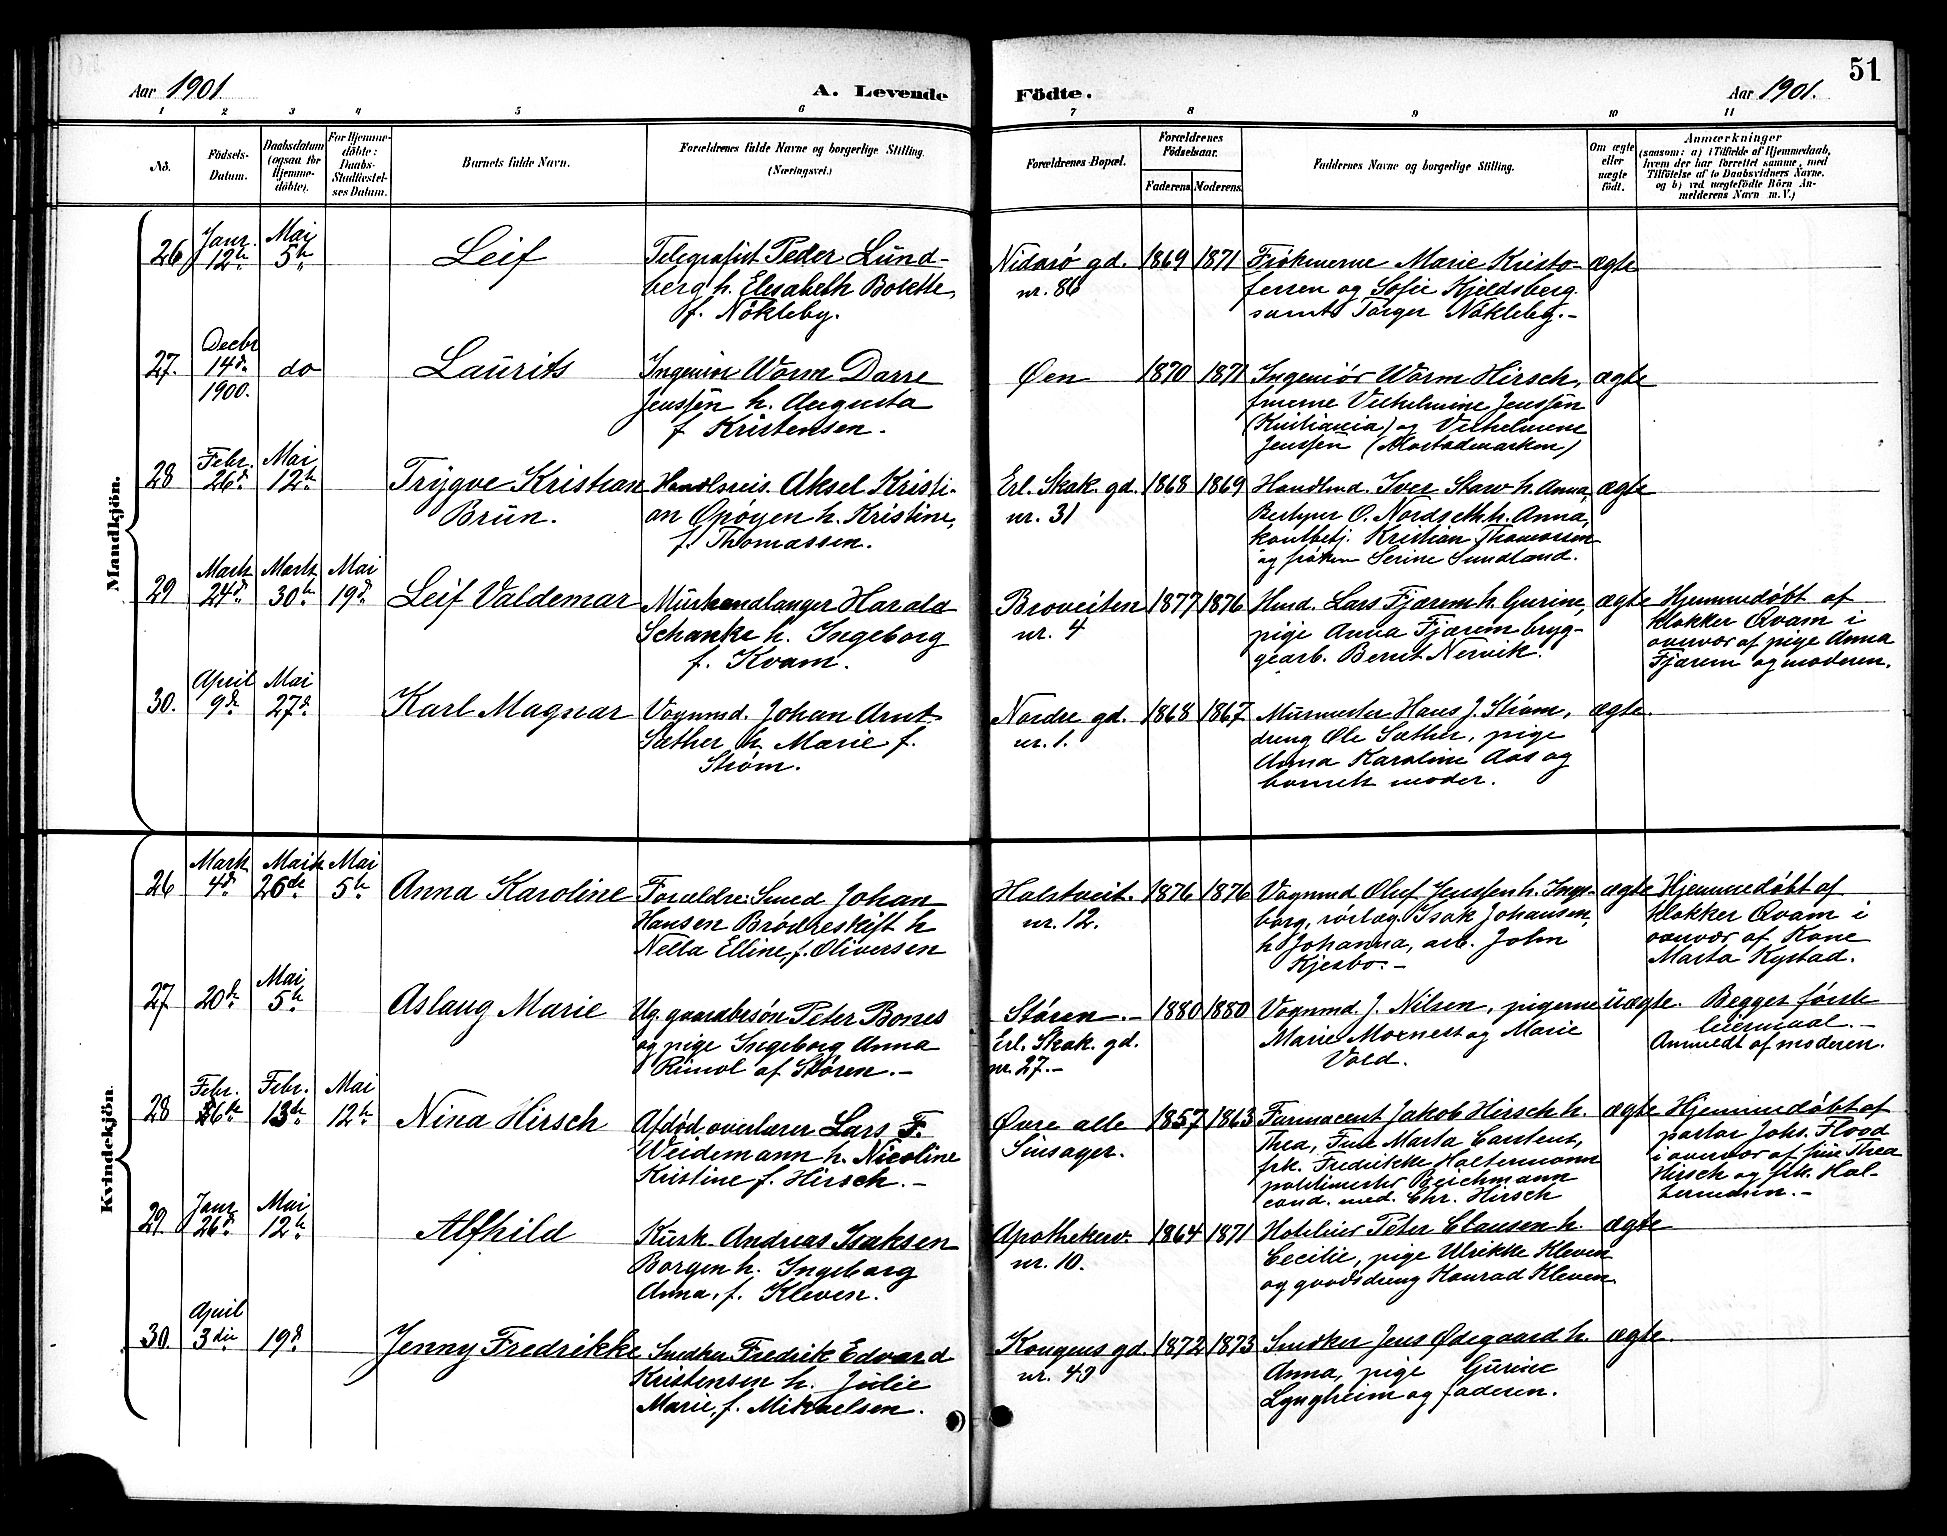 Aar 1901.
A. Levende
Födte.
Aar 1901.
51
1 2 3 4 5 6 7 8 9 10 11
No.
Födsels-
Datum.
Daabsdatum
(ogsaa for
Hjemme-
döbte).
For Hjemme-
döbte:
Daabs-
Stadfæstel-
ses Datum.
Barnets fulde Navn.
Forældrenes fulde Navne og borgerlige Stilling.
(Næringsvei.)
Forældrenes Bopæl.
Forældrenes
Födselsaar.
Faderens.
Moderens.
Faddernes Navne og borgerlige Stilling.
Om ægte
eller
uægte
födt.
Anmærkninger
(saasom: a) i Tilfælde af Hjemmedaab,
hvem der har forrettet samme, med
Tilföielse af to Daabsvidners Navne.
og b) ved uægtefödte Börn An-
melderens Navn m. V.)
Mandkjön.
26
Janr.
12te
Mai
5te
Leif
Telegrafist Peder Lund-
berg h. Elesabeth Bolette,
f. Nökleby.
Nidarø gd.
nr. 86
1869
1871
Frøknerne Marie Kristo-
fersen og Sofie Kjeldsberg
samt Torger Nökleby.-
ægte
27.
Decbr
14de
1900.
do
Laurits
Ingeniör Worm Darre
Jenssen h. Augusta
f Kristensen.
Øen
1870
1871
Ingeniör Worm Hirsch,
fruerne Vilhelmine Jenssen
(Kristiania) og Vilhelmine
Jenssen (Mostadmarken)
ægte
28
Febr.
26de
Mai
12te
Trygve Kristian
Brun.
Handlsreis. Aksel Kristi-
an Opøyen h. Kristine,
f. Thomassen.
Erl. Skak. gd.
nr. 31
1868
1869
Handlmd. Iver Staw h. Anna,
Bestyrer O. Nordseth h. Anna,
kontbetj. Kristian Thomassen
og frøken Serine Sundland.
ægte
29
Marts
24de
Marts
30te
Mai
19de
Leif Valdemar
Murhandlanger Harald
Schanke h. Ingeborg
f. Kvam.
Broveiten
nr. 4
1877
1876
Hmd. Lars Fjærem h. Gurine,
pige Anna Fjærem bryg-
gearb. Bernt Nervik.
ægte
Hjemmedøbt af
klokker Qvam i
overvær af pige Anna
Fjærem og moderen.
30.
April
9de
Mai
27de
Karl Magnar
Vognmd. Johan Arnt
Sæther h. Marie f.
Strøm.
Nordre gd.
nr. 1.
1868
1867
Murmester Hans J. Strøm,
dreng Ole Sæther, pige
Anna Karoline Aas og
barnets moder.
ægte.
Kvindekjön.
26
Marts
4de
Marts
26de
Mai
5te
Anna Karoline
Forældre: Smed Johan
Hansen Brødreskift h
Nella Elline, f. Oliversen
Halstveit.
nr. 12.
1876
1876
Vognmd Oluf Jenssen h. Inge-
borg, rørlæg. Isak Johansen,
h Johanna, arb. John
Kjesbo.-
ægte
Hjemmedøbt af
klokker Qvam i
overvær af Kone
Marta Kystad.
27
20de
Mai
5te
Aslaug Marie
Ug. gaardbesön Peter Bones
og pige Ingeborg Anna
Rimol af Støren.-
Støren.-
Erl. Skak. gd.
nr. 27.-
1880
1880
Vognmd. J. Nilsen, pigerne
Marie Moxnest og Marie
Vold.
uægte.
Begges første
leiermaal.-
Anmeldt af moderen.
28
Febr.
6te
Febr.
13de
Mai
12te
Nina Hirsch
Afdød overlærer Lars F.
Weidemann h. Nicoline
Kristine f. Hirsch.-
Øvre alle
Sinsager.
1857
1863
Farmaceut Jakob Hirsch h.
Thea, Frue Marta Carstens,
frk. Fredrikke Haltermann
politimester Reichmann
cand. med. Chr. Hirsch
ægte
Hjemmedøbt af
pastor Johs. Flood
i overvær af frue Thea
Hirsch og frk. Hal-
termann.-
29.
Janr
26de
Mai
12te
Alfhild
Kusk Andreas Isaksen
Borgen h. Ingeborg
Anna, f. Kleven.
Apothekerv.
nr. 10.
1864
1871
Hoteleier Peter Clausen h.
Cecilie, pige Ulrikke Kleven
og gaardsdreng Konrad Kleven.
ægte
30.
April
3die
19de
Jenny Fredrikke
Snedker Fredrik Edvard
Kristensen h. Julie
Marie, f. Mikaelsen.
Kongens gd.
nr. 49
1872
1873
Snedker Jens Ødegaard h.
Anna, pige Gurine
Lyngheim og faderen.
ægte.